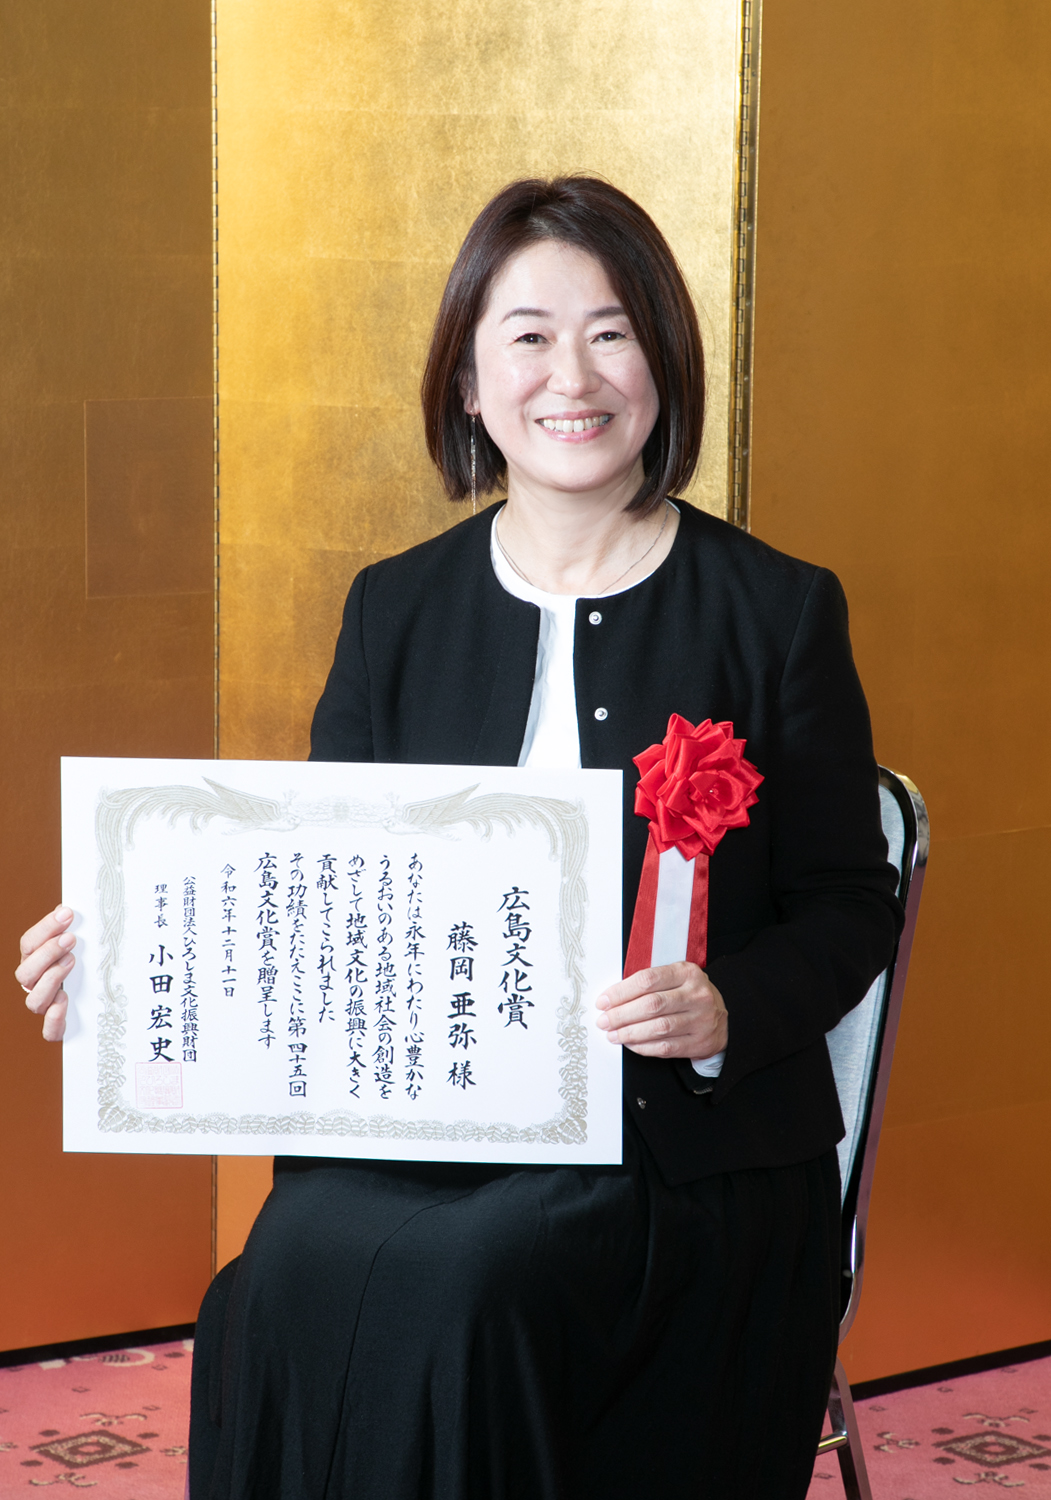 広島文化賞
藤岡亜弥 様
あなたは永年にわたり心豊かな
うるおいのある地域社会の創造を
めざして地域文化の振興に大きく
貢献してこられました
その功績をたたえここに第四十五回
広島文化賞を贈呈します
令和六年十二月十一日
公益財団法人ひろしま文化振興財団
理事長 小田宏史